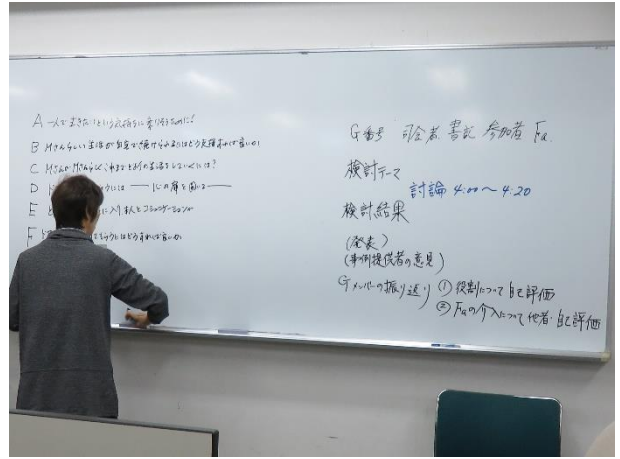 A 一人で生きたいという気持ちに寄りそうために!
B Mさんらしい生活が自宅で続けられるにはどう支援すれば言いか
C MさんがMさんらしくこれまでどおりの生活をしていくには?
D には ―心の扉を開ける―
E に入り 本人とコミュニケーション
F にはどうすれば言いか
G番号 司会者 書記 参加者 Fa.
検討テーマ
討論 4:00～4:20
検討結果
(発表)
(事例提供者の意見)
Gメンバーの振り返り ①役割について自己評価
②Faの介入について他者・自己評価